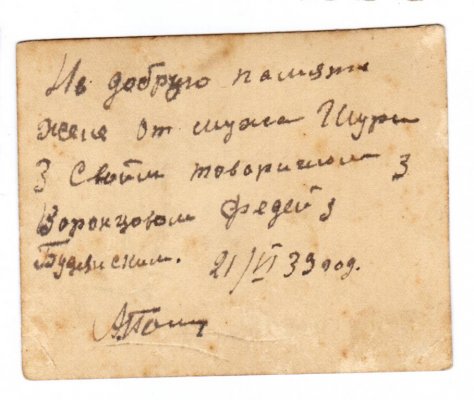 На добрую памяти
жене от мужа Шуры
З Своим товарищом З
Воронцовом Федей з
21/VI 39 год.